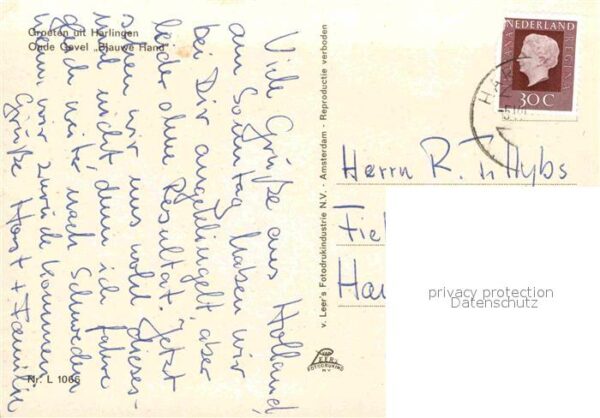 Groeten uit Harlingen
Oude Gevel „Blauwe Hand"
Viele Grüße aus Holland,
am Sonntag haben wir
bei Dir angeklingelt, aber
leider ohne Resultat. Jetzt
sehen wir uns wohl dieses-
mal nicht, denn ich fahre
gleich weiter nach Schweden
wenn wir zurück kommen.
Grüße Horst + Familie
Nr. L 1066
v. Leer's Fotodrukindustrie N.V. - Amsterdam - Reproductie verboden
NEDERLAND
JULIANA REGINA
30 C
Herrn R.
Fie
Ha
privacy protection
Datenschutz
LEER's
FOTODRUKIND
N.V.